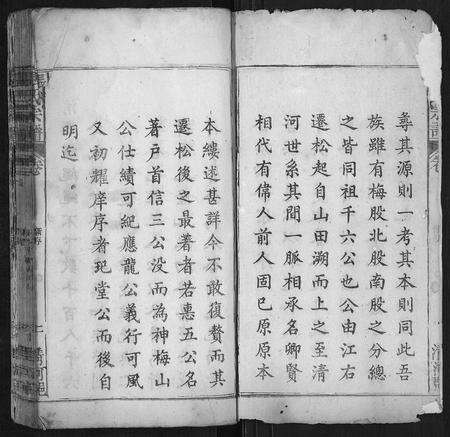 彞其源則一考其本則同此吾
族雖有梅股北股南股之分總
之皆同祖千六公也公由江右
遷松起自山田溯而上之至清
河世系其間一脈相承名卿賢
相代有偉人前人固巳原原本
本縷述甚詳今不敢復贅而其
遷松後之最著者若惠五公名
著戸首信三公没而為神梅山
公仕績可紀應龍公義行可風
又初耀庠序者玘堂公而後自
明迄